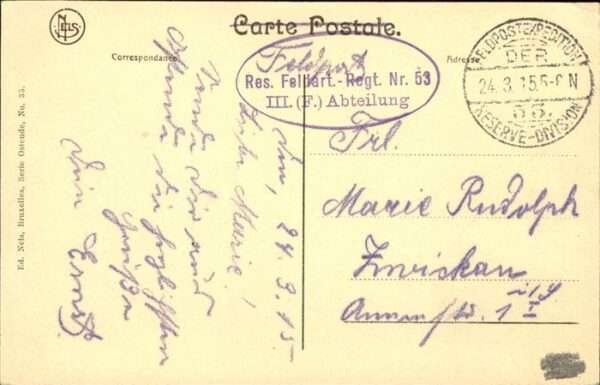 NELS
Carte Postale.
Correspondance
Adresse
Feldpost
Res. Feldart.-Regt. Nr. 53
III. (F.) Abteilung
FELDPOSTEXPEDITION
DER
24.3.15.5-6 N
53.
RESERVE-DIVISION
Ed. Nels, Bruxelles, Serie Ostende, No. 35.
Den, 24.3.15.
Liebe Marie!
Sende Dir aus
Ostende die herzlichsten
Grüße
Dein Ernst.
Frl.
Marie Rudolph
Zwickau i/S
Annenstr. 1 I